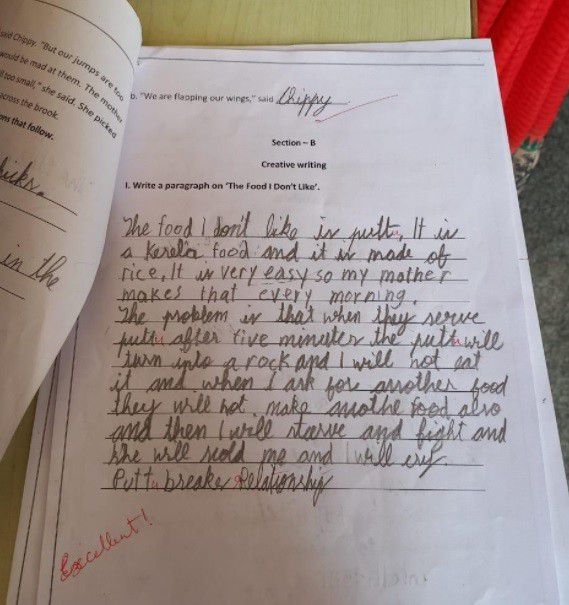 said Chippy. "But our jumps are too
would be mad at them. The mother
ll too small," she said. She picked
across the brook.
ons that follow.
icks.
in the
b. "We are flapping our wings," said Chippy
Section – B
Creative writing
I. Write a paragraph on 'The Food I Don't Like'.
The food I don't like is puttu. It is
a Kerela food and it is made of
rice. It is very easy so my mother
makes that every morning.
The problem is that when they serve
puttu after five minutes the puttu will
turn into a rock and I will not eat
it and when I ask for another food
they will not make anothe food also
and then I will starve and fight and
she will scold me and I will cry.
Puttu breaks Relationship
Excellent!